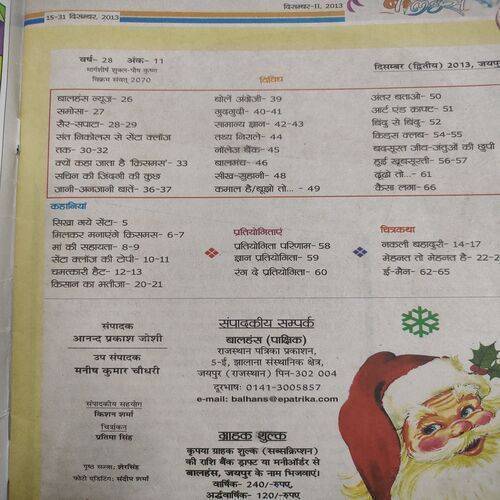 15-31 दिसम्बर, 2013
दिसम्बर-II, 2013
वर्ष- 28 अंक- 11
मार्गशीर्ष शुक्ल-पौष कृष्ण
विक्रम संवत् 2070
दिसम्बर (द्वितीय) 2013, जयपु
विविध
बालहंस न्यूज- 26
समोसा- 27
सैर-सपाटा- 28-29
संत निकोलस से सेंटा क्लॉज
तक- 30-32
क्यों कहा जाता है 'क्रिसमस'- 33
सचिन की जिंदगी की कुछ
जानी-अनजानी बातें- 36-37
बोलें अंग्रेजी- 39
गुदगुदी- 40-41
सामान्य ज्ञान- 42-43
तथ्य निराले- 44
नॉलेज बैंक- 45
बालमंच- 46
सीख-सुहानी- 48
कमाल है/बूझो तो... - 49
अंतर बताओ- 50
आर्ट एंड क्राफ्ट- 51
बिंदु से बिंदु- 52
किड्स क्लब- 54-55
बदसूरत जीव-जंतुओं की छुपी
हुई खूबसूरती- 56-57
ढूंढो तो... - 61
कैसा लगा- 66
कहानियां
सिखा गये सेंटा- 5
मिलकर मनाएंगे क्रिसमस- 6-7
मां की सहायता- 8-9
सेंटा क्लॉज की टोपी- 10-11
चमत्कारी हैट- 12-13
किसान का भतीजा- 20-21
प्रतियोगिताएं
प्रतियोगिता परिणाम- 58
ज्ञान प्रतियोगिता- 59
रंग दे प्रतियोगिता- 60
चित्रकथा
नकली बहादुरी- 14-17
मेहनत तो मेहनत है- 22-2
ई-मैन- 62-65
संपादक
आनन्द प्रकाश जोशी
उप संपादक
मनीष कुमार चौधरी
संपादकीय सहयोग
किशन शर्मा
चित्रांकन
प्रतिमा सिंह
पृष्ठ सज्जा: शेरसिंह
फोटो एडिटिंग: संदीप शर्मा
संपादकीय सम्पर्क
बालहंस (पाक्षिक)
राजस्थान पत्रिका प्रकाशन,
5-ई, झालाना संस्थानिक क्षेत्र,
जयपुर (राजस्थान) पिन-302 004
दूरभाष: 0141-3005857
e-mail: balhans@epatrika.com
ग्राहक शुल्क
कृपया ग्राहक शुल्क (सब्सक्रिप्शन)
की राशि बैंक ड्राफ्ट या मनीऑर्डर से
बालहंस, जयपुर के नाम भिजवाएं।
वार्षिक- 240/-रुपए,
अर्द्धवार्षिक- 120/-रुपए